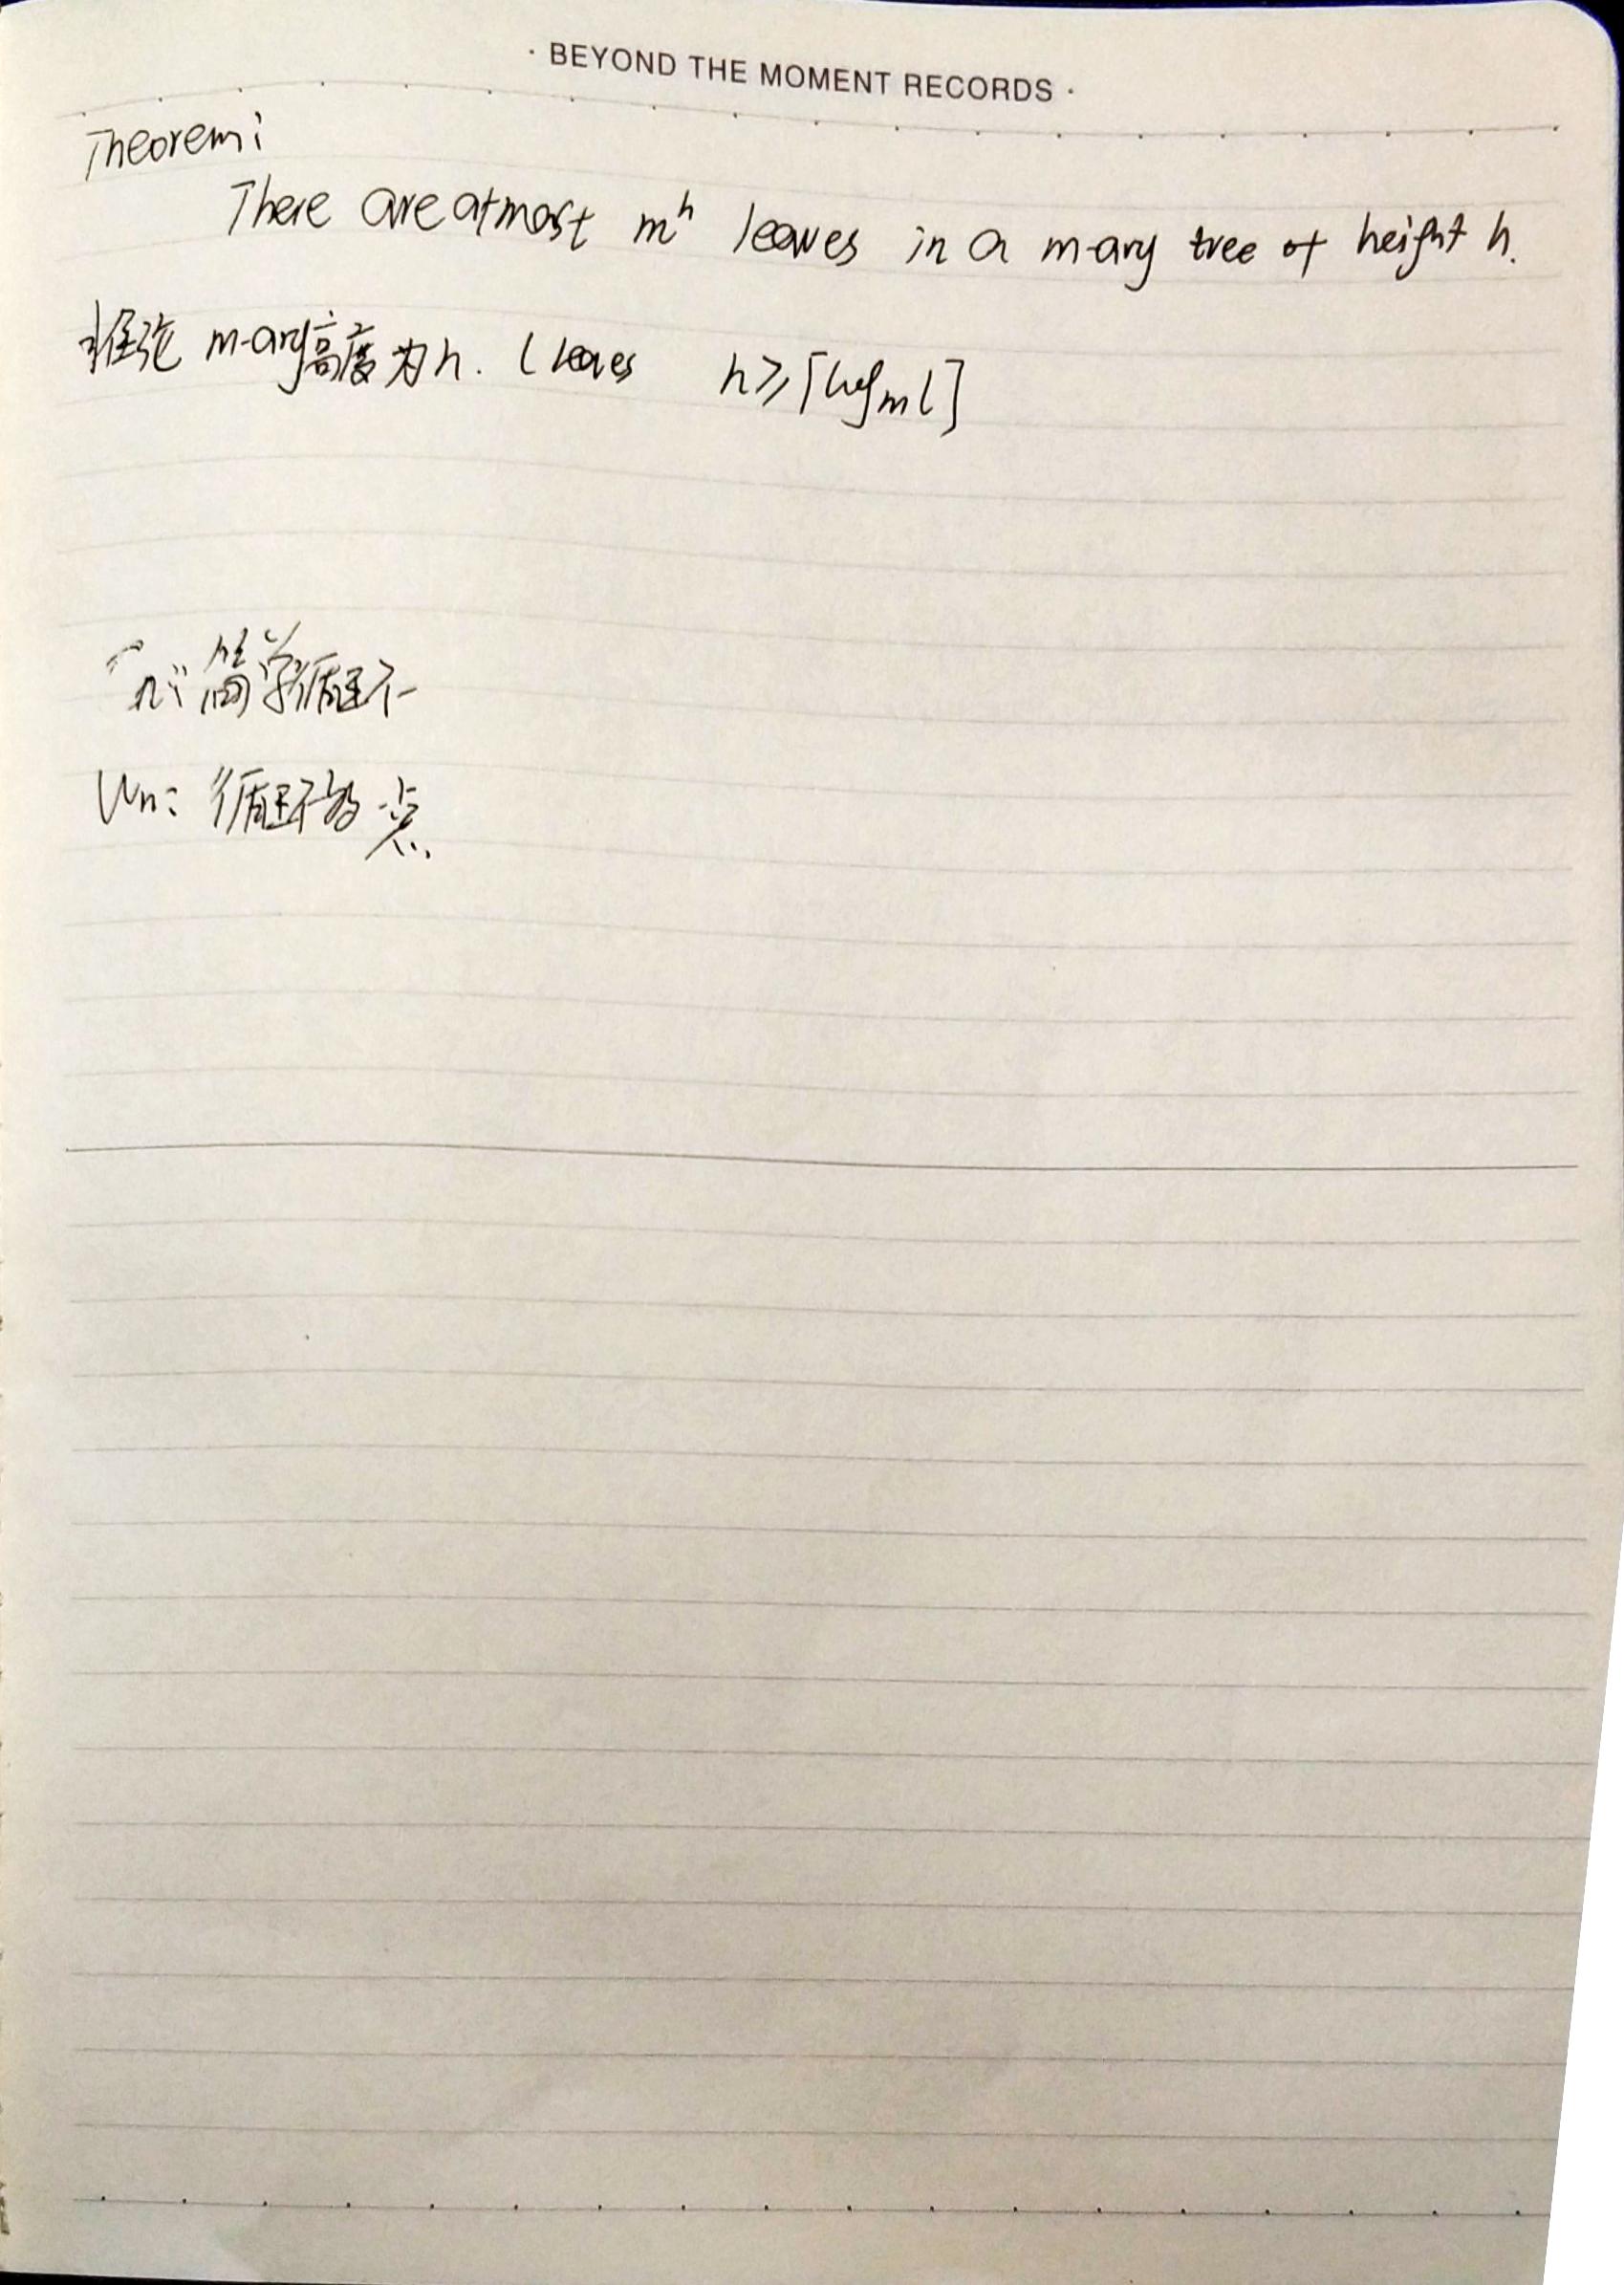 · BEYOND THE MOMENT RECORDS ·
Theorem:
There are atmost mʰ leaves in a m-ary tree of height h.
推论 m-ary高度为h. l leaves h≥⌈logₘl⌉
简单循环
Wn: 循环的点